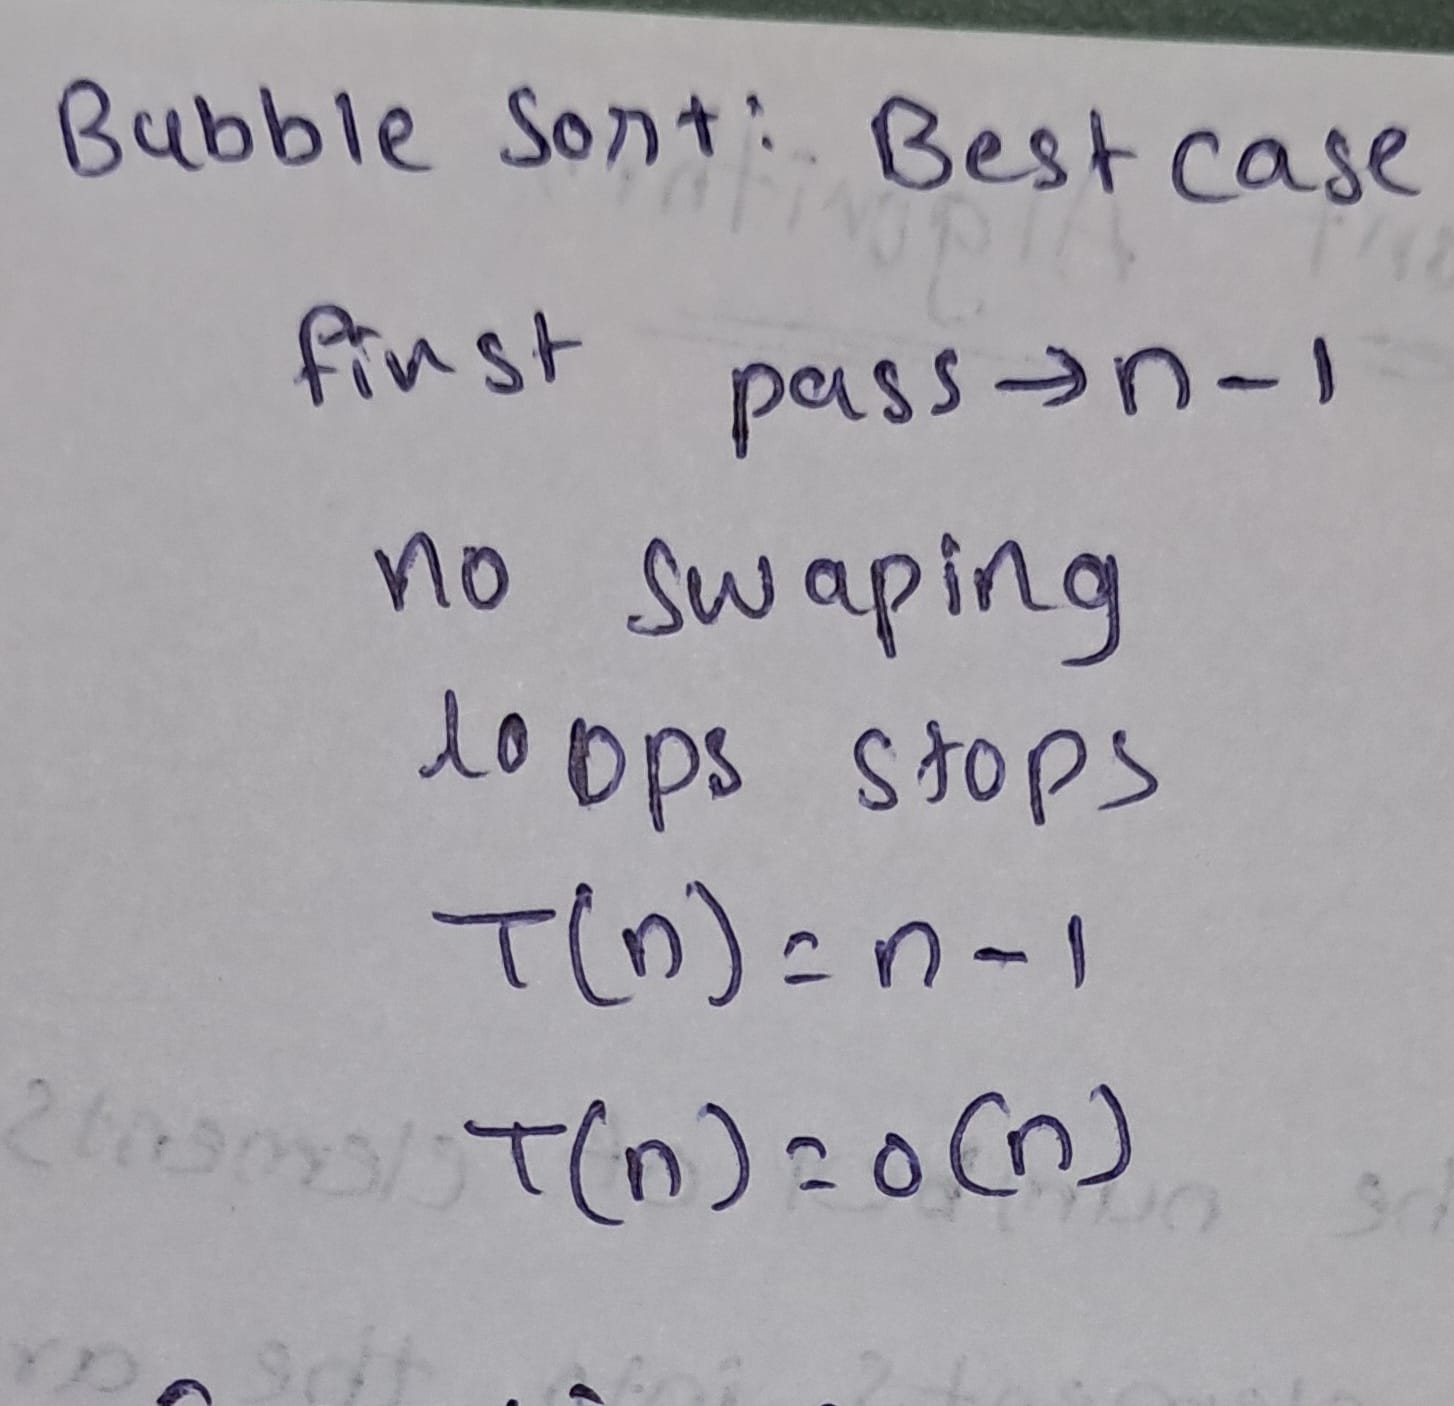 Bubble Sort: Best case
first pass → n-1
no swaping
loops stops
T(n) = n-1
T(n) = o(n)